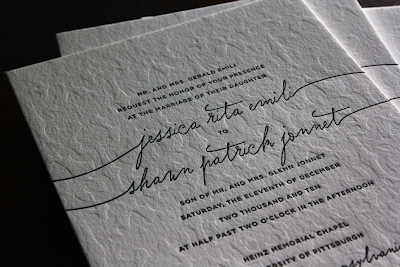 MR. AND MRS. GERALD EMILI
REQUEST THE HONOR OF YOUR PRESENCE
AT THE MARRIAGE OF THEIR DAUGHTER
jessica rita emili
TO
shaun patrick jonnet
SON OF MR. AND MRS. GLENN JOHNET
SATURDAY, THE ELEVENTH OF DECEMBER
TWO THOUSAND AND TEN
AT HALF PAST TWO O'CLOCK IN THE AFTERNOON
HEINZ MEMORIAL CHAPEL
UNIVERSITY OF PITTSBURGH